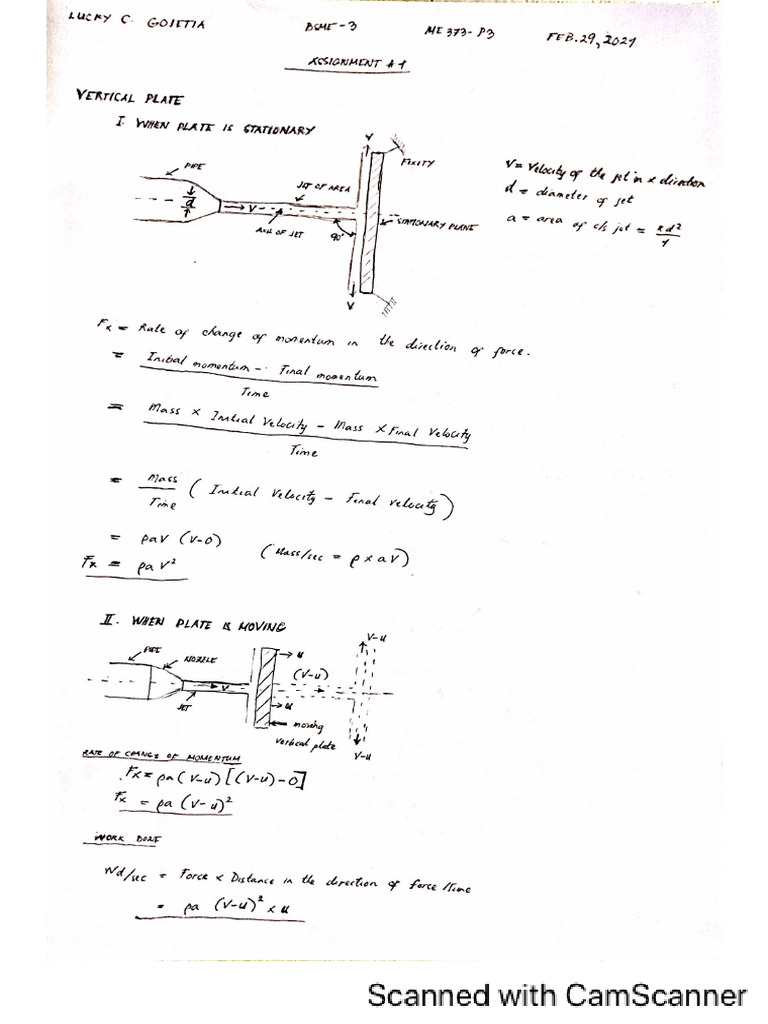 LUCKY C. GOIETIA BSME-3 ME 373-P3 FEB. 29, 2021
ASSIGNMENT #1
VERTICAL PLATE
I. WHEN PLATE IS STATIONARY
PIPE
d
V
JET OF AREA
AXIS OF JET
90°
V
V
FIXITY
STATIONARY PLANE
V = Velocity of the jet in x direction
d = diameter of jet
a = area of c/s jet = πd²/4
Fx = Rate of change of momentum in the direction of force.
= Initial momentum - Final momentum
Time
= Mass × Initial Velocity - Mass × Final Velocity
Time
= Mass/Time (Initial Velocity - Final velocity)
= ρaV (V-0) (Mass/sec = ρ × aV)
Fx = ρaV²
II. WHEN PLATE IS MOVING
PIPE
NOZZLE
V
JET
u
(V-u)
u
moving
vertical plate
V-u
V-u
RATE OF CHANGE OF MOMENTUM
Fx = ρa(V-u)[(V-u)-0]
Fx = ρa (V-u)²
WORK DONE
Wd/sec = Force × Distance in the direction of force/Time
= ρa (V-u)² × u
Scanned with CamScanner